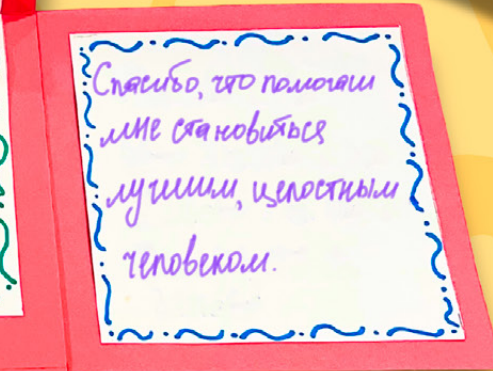 Спасибо, что помогаш
мне становиться
лучшим, целостным
человеком.